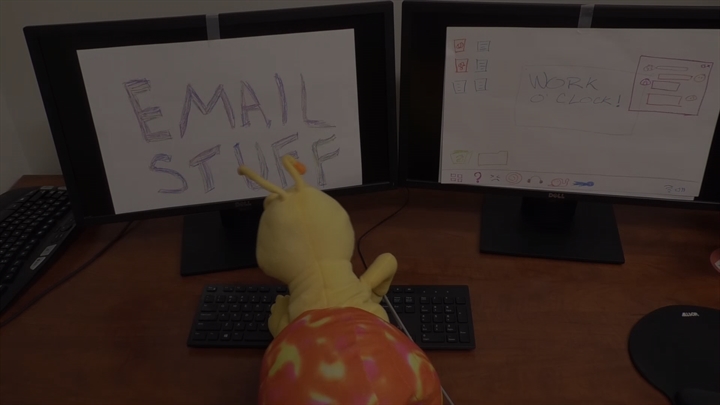 EMAIL
STUFF
WORK
O'CLOCK!
DELL